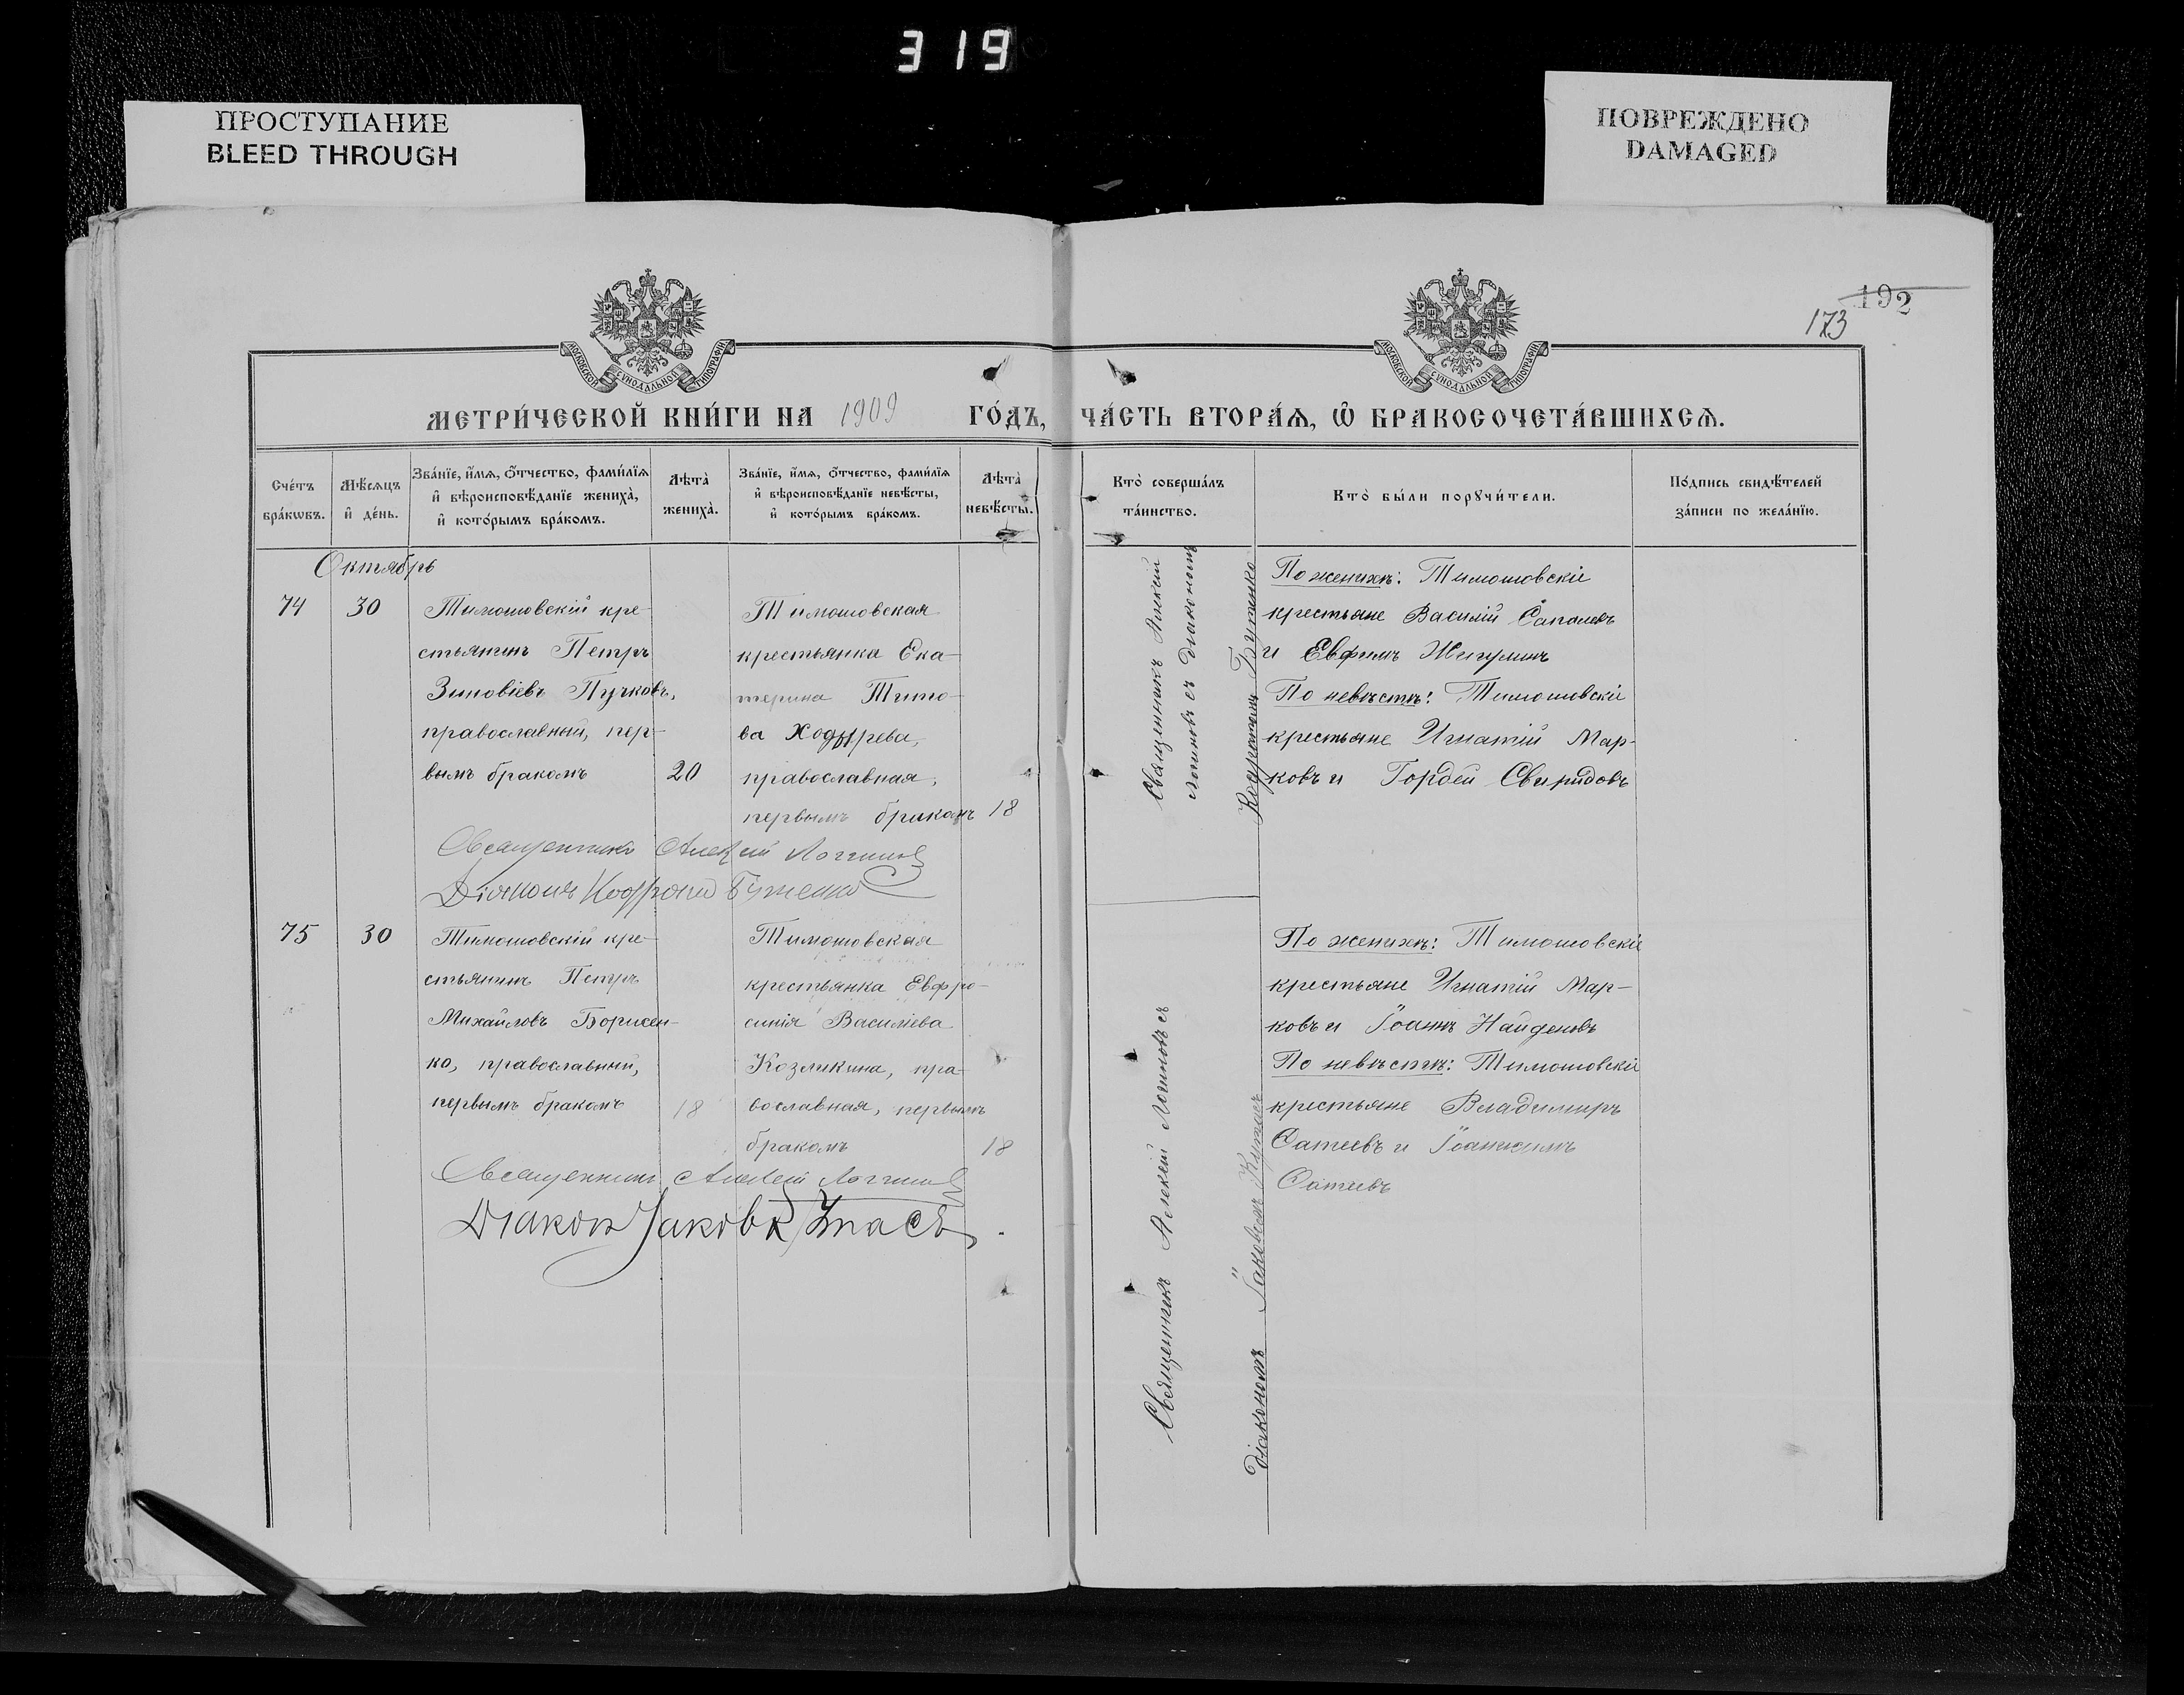 319
ПРОСТУПАНИЕ
BLEED THROUGH
ПОВРЕЖДЕНО
DAMAGED
192
173
МОСКОВСКОЙ СѴНОДАЛЬНОЙ ТИПОГРАФІИ
МОСКОВСКОЙ СѴНОДАЛЬНОЙ ТИПОГРАФІИ
МЕТРИ́ЧЕСКОЙ КНИ́ГИ НА 1909 ГО́ДЪ, ЧА́СТЬ ВТОРА́Ѧ, Ѿ БРАКОСОЧЕТА́ВШИХСѦ.
Сче́тъ
бра́кѡвъ.
Мѣ́сѧцъ
и҆ де́нь.
Зва́нїе, и҆́мѧ, ѻ҆́тчество, фами́лїѧ
и҆ вѣроисповѣ́данїе жениха̀,
и҆ кото́рымъ бра́комъ.
Лѣ́та̀
жениха̀.
Зва́нїе, и҆́мѧ, ѻ҆́тчество, фами́лїѧ
и҆ вѣроисповѣ́данїе невѣ́сты,
и҆ кото́рымъ бра́комъ.
Лѣ́та̀
невѣ́сты.
Кто̀ соверша́лъ
та́инство.
Кто̀ бы́ли порꙋчи́тели.
По́дпись свидѣ́телей
за́писи по жела́нїю.
Октябрь
74
30
Тимошовскій кре-
стьянинъ Петръ
Зиновіевъ Пучковъ,
православный, пер-
вымъ бракомъ
20
Тимошовская
крестьянка Ека-
терина Тито-
ва Ходырева,
православная,
первымъ бракомъ
18
Священникъ Алексій
Логиновъ съ Діакономъ
Кодратомъ Бутенко
По женихѣ: Тимошовскіе
крестьяне Василій
и Евфимъ Жигулинъ
По невѣстѣ: Тимошовскіе
крестьяне Игнатій Мар-
ковъ и Гордей Свиридовъ
Священникъ Алексій Логгиновъ
Діаконъ Кодратъ Бутенко
75
30
Тимошовскій кре-
стьянинъ Петръ
Михайловъ Борисен-
ко, православный,
первымъ бракомъ
18
Тимошовская
крестьянка Евфро-
синія Василіева
Козликина, пра-
вославная, первымъ
бракомъ
18
Священникъ Алексій Логиновъ съ
Діакономъ Іаковомъ
По женихѣ: Тимошовскіе
крестьяне Игнатій Мар-
ковъ и Іоаннъ Найденовъ
По невѣстѣ: Тимошовскіе
крестьяне Владимиръ
Сатеевъ и Іоакимъ
Сатеевъ
Священникъ Алексій Логгиновъ
Діаконъ Іаковъ